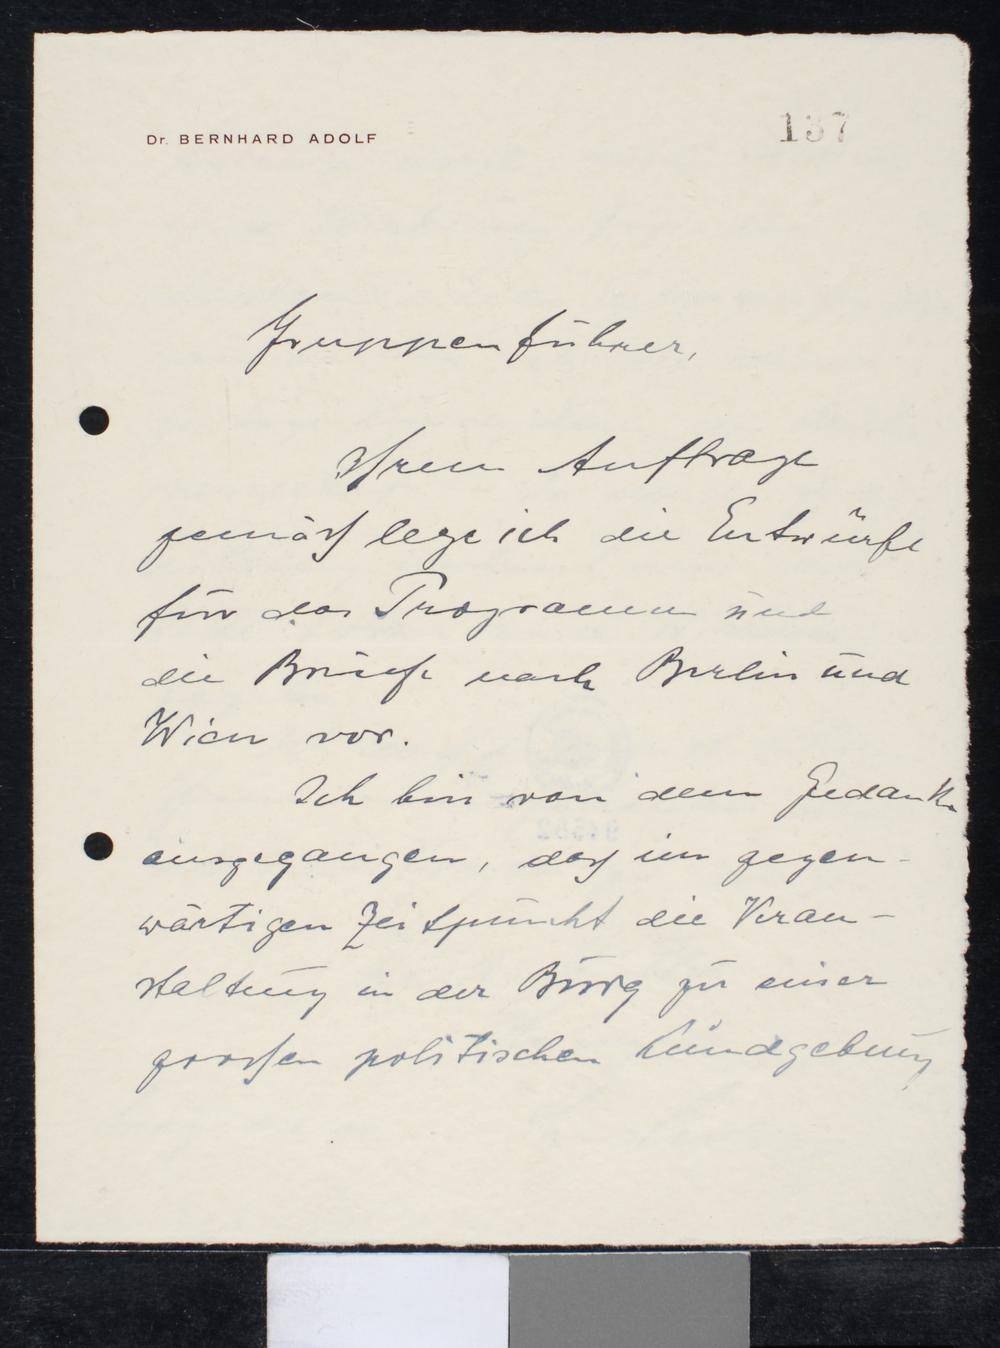 Dr. BERNHARD ADOLF
137
Gruppenführer,
Ihrem Auftrage
gemäß lege ich die Entwürfe
für das Programm und
die Briefe nach Berlin und
Wien vor.
Ich bin von dem Gedanken
ausgegangen, daß im gegen-
wärtigen Zeitpunkt die Veran-
staltung in der Burg zu einer
großen politischen Kundgebung